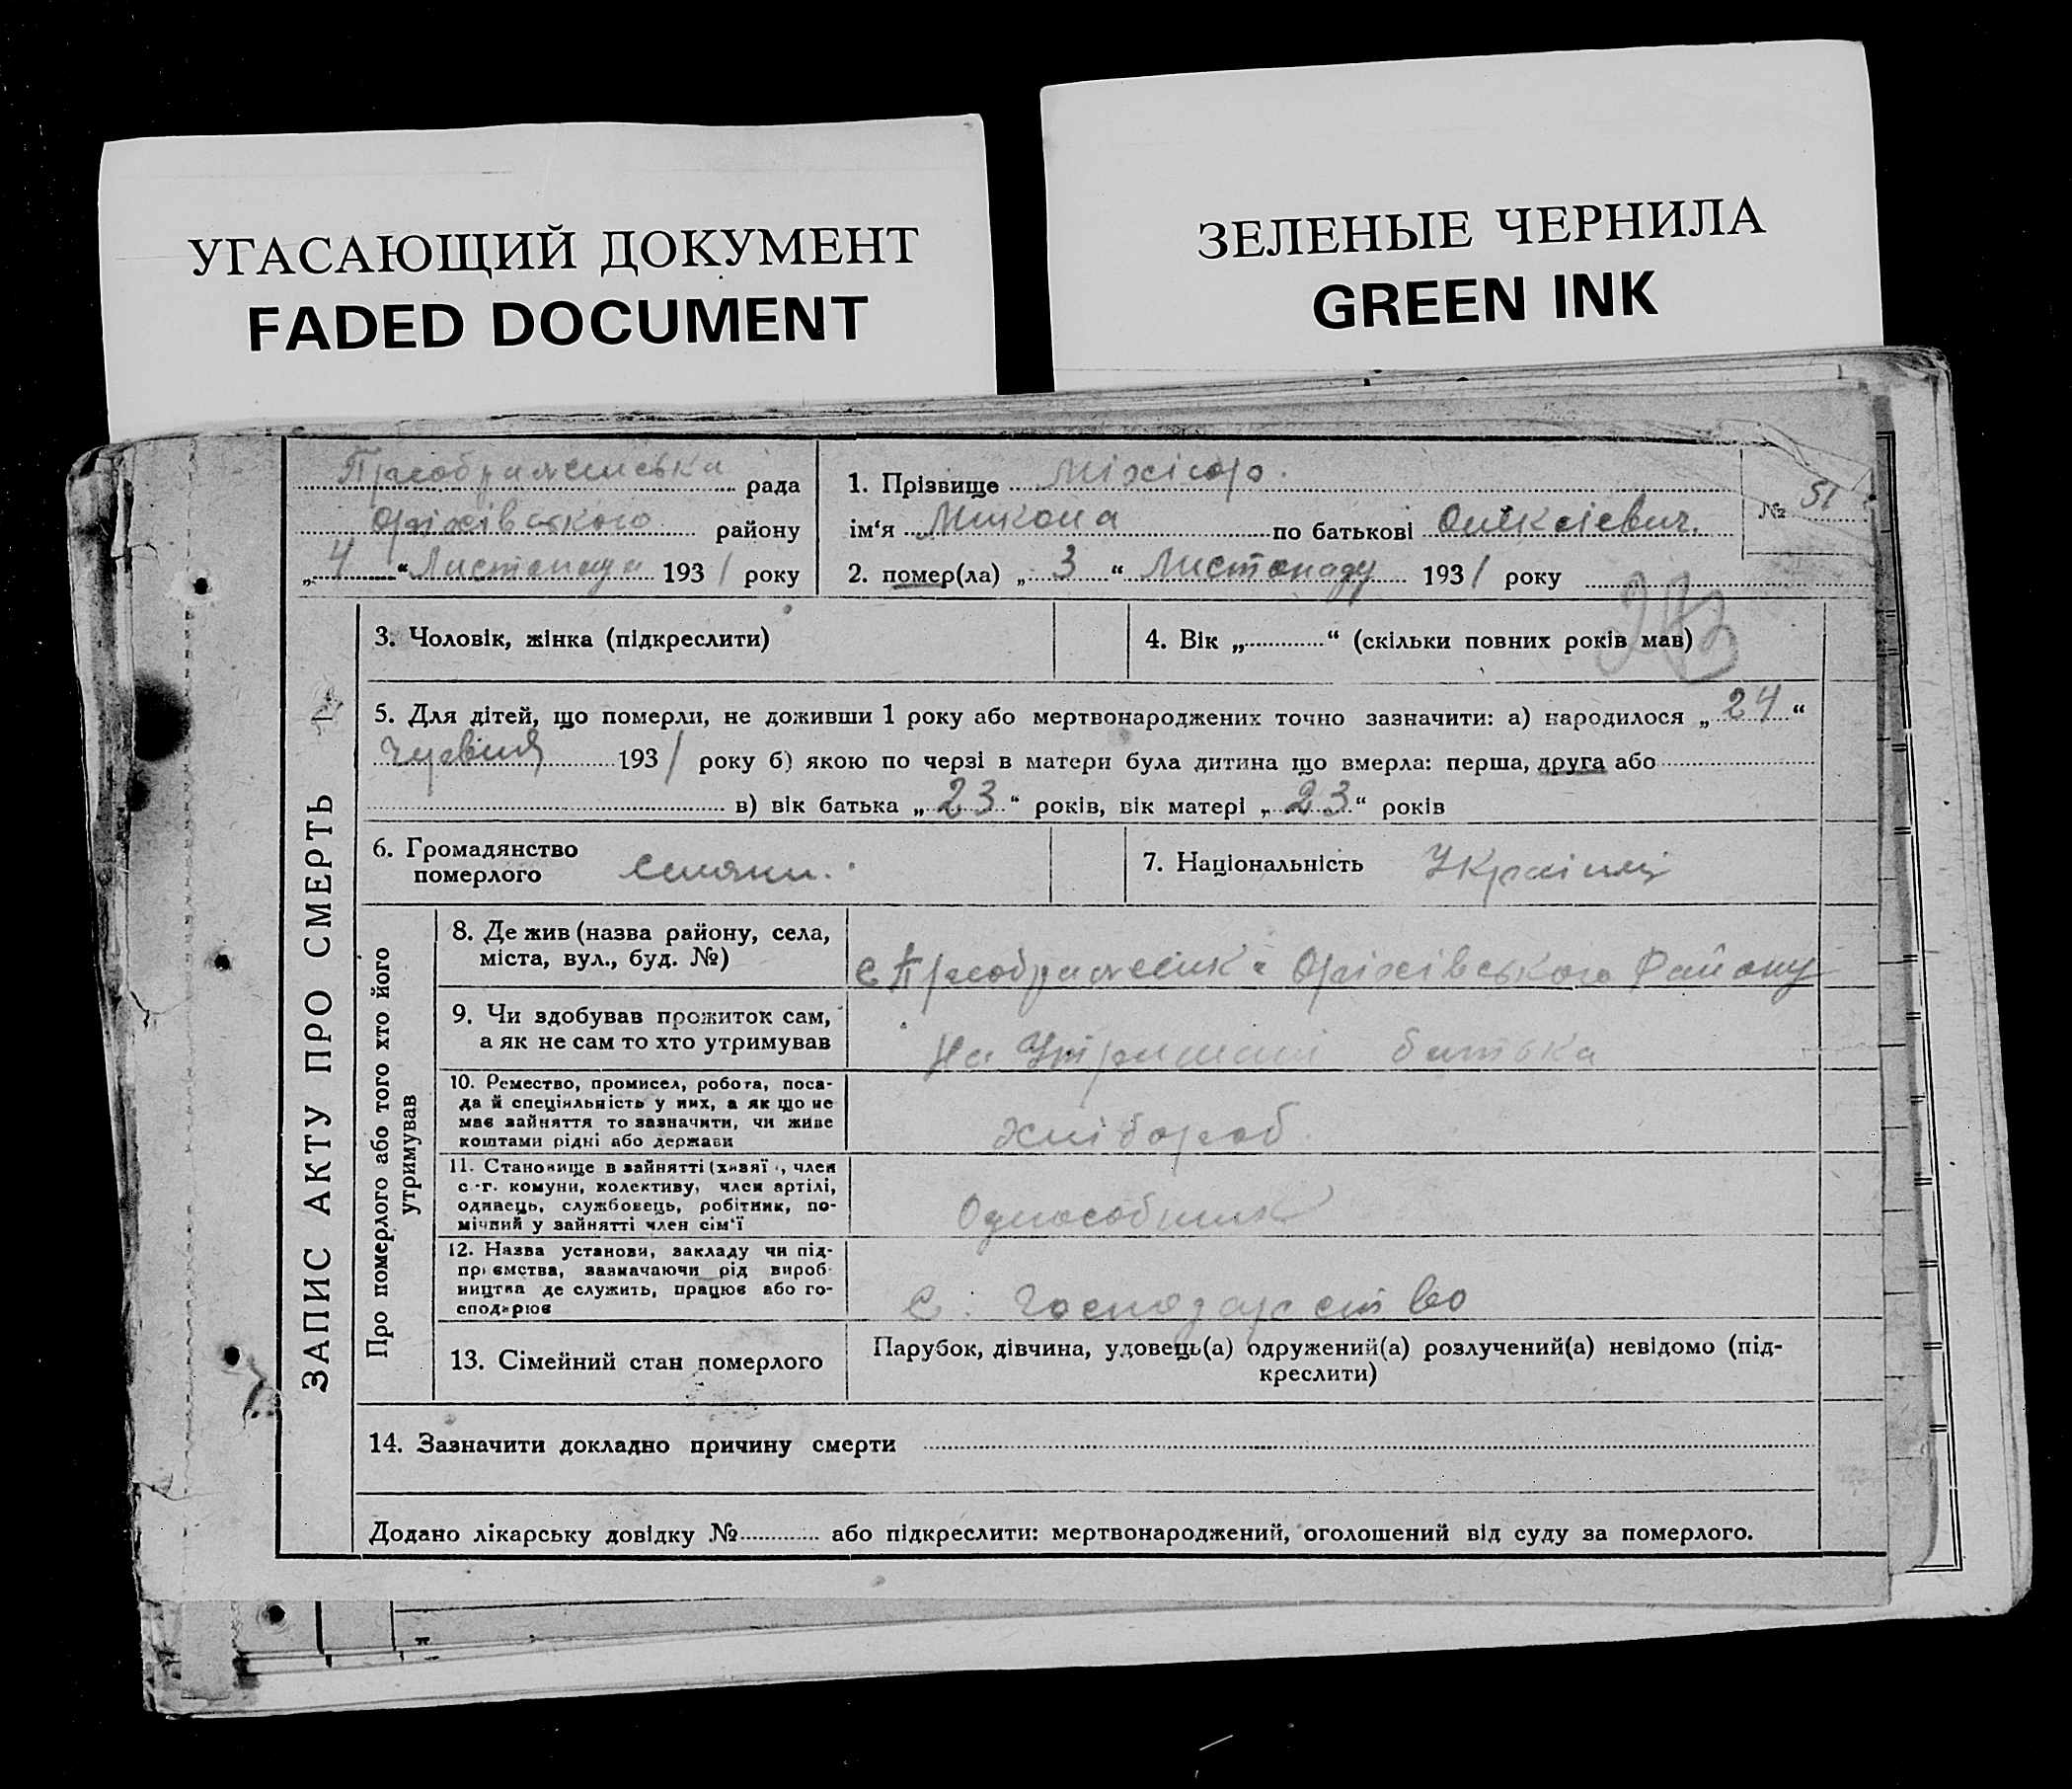 УГАСАЮЩИЙ ДОКУМЕНТ
FADED DOCUMENT
ЗЕЛЕНЫЕ ЧЕРНИЛА
GREEN INK
Преображенська рада
Оріхівського району
„4“ Листопада 1931 року
1. Прізвище
ім‘я Микола по батькові Олексієвич.
№ 51
2. помер(ла) „3“ Листопаду 1931 року
ЗАПИС АКТУ ПРО СМЕРТЬ
3. Чоловік, жінка (підкреслити)
4. Вік „............“ (скільки повних років мав)
5. Для дітей, що померли, не доживши 1 року або мертвонароджених точно зазначити: а) народилося „24“
Червня 1931 року б) якою по черзі в матери була дитина що вмерла: перша, друга або
в) вік батька „23“ років, вік матері „23“ років
6. Громадянство
померлого
7. Національність Україниц
Про померлого або того хто його
утримував
8. Де жив (назва району, села,
міста, вул., буд. №)
с Преображенка Оріхівського Району
9. Чи здобував прожиток сам,
а як не сам то хто утримував
На Утриманні батька
10. Ремество, промисел, робота, поса-
да й спеціяльність у них, а як що не
має зайняття то зазначити, чи живе
коштами рідні або держави
хлібороб
11. Становище в зайнятті (хазяї, член
с.-г. комуни, колективу, член артілі,
одинець, службовець, робітник, по-
мічний у зайнятті член сім‘ї
Одноосібник
12. Назва установи, закладу чи під-
приємства, зазначаючи рід вироб-
ництва де служить, працює або го-
сподарює
С. Господарство
13. Сімейний стан померлого
Парубок, дівчина, удовець(а) одружений(а) розлучений(а) невідомо (під-
креслити)
14. Зазначити докладно причину смерти
Додано лікарську довідку №............ або підкреслити: мертвонароджений, оголошений від суду за померлого.